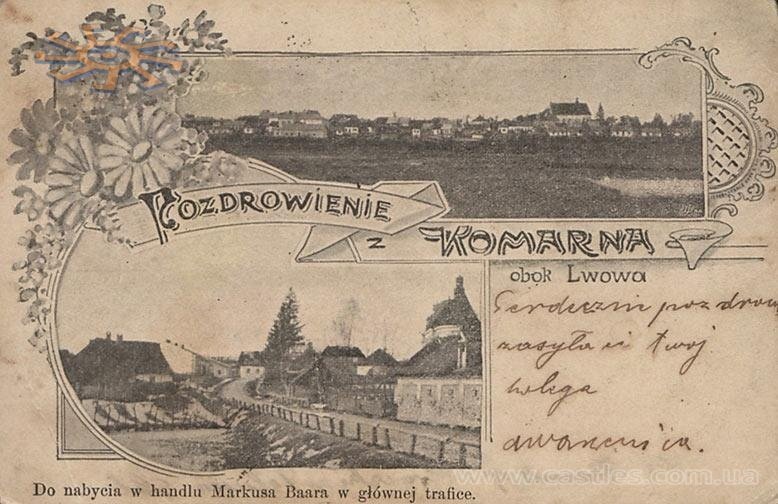 POZDROWIENIE
Z KOMARNA
obok Lwowa
Serdeczne pozdrow
zasyła ci twój
kolega
Do nabycia w handlu Markusa Baara w głównej trafice.
www.castles.com.ua